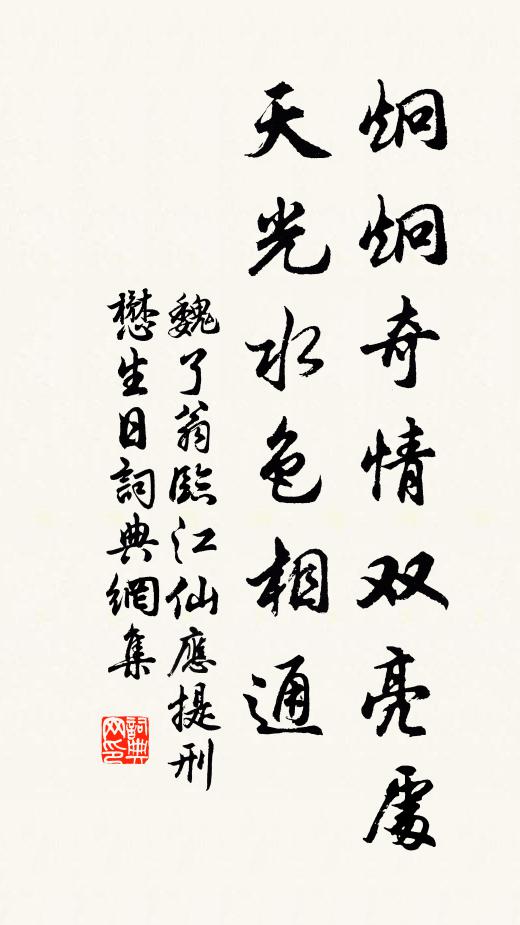 炯炯奇情双亮處
天光水色相通
魏了翁臨江仙應提刑
懋生日詞典網集
詞典网印